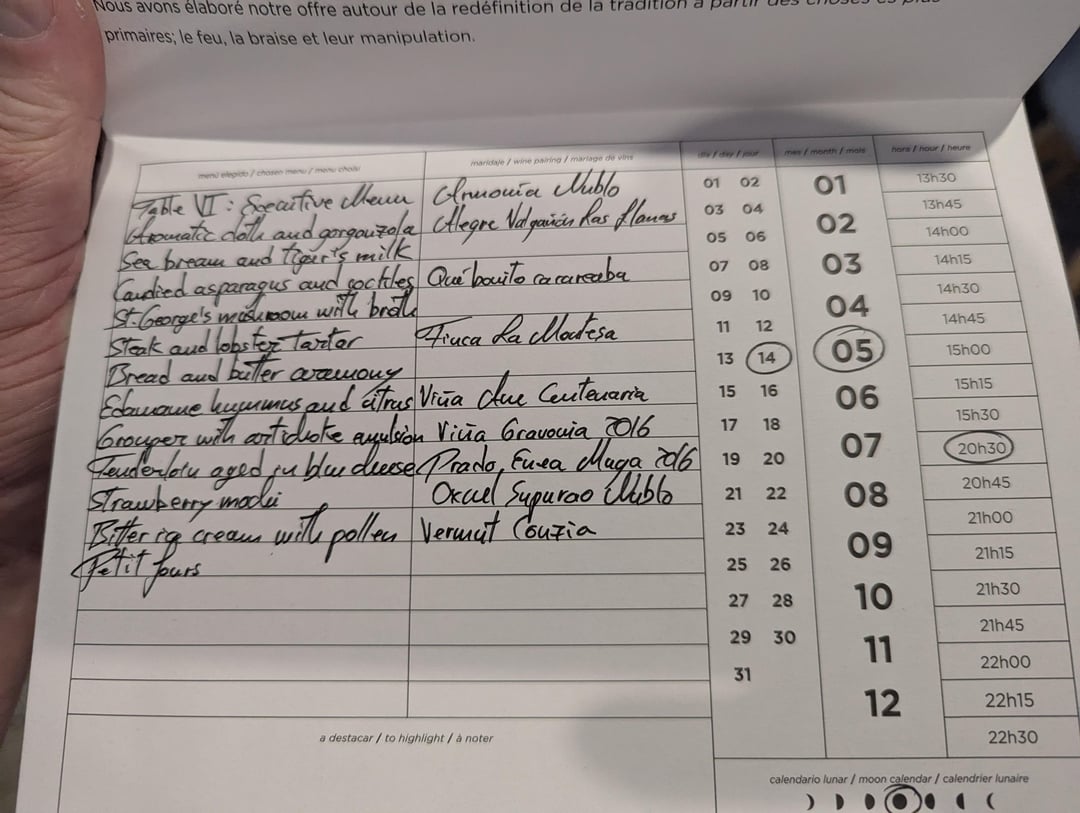 Nous avons élaboré notre offre autour de la redéfinition de la tradition à partir des choses
primaires; le feu, la braise et leur manipulation.
menú elegido / chosen menu / menu choisi
maridaje / wine pairing / mariage de vins
día / day / jour
mes / month / mois
hora / hour / heure
Table VI: Executive Menu
Aromatic and gorgonzola
Sea bream and tiger's milk
Candied asparagus and cockles
St. George's mushroom with broth
Steak and lobster tartar
Bread and butter
Edamame hummus and citrus
Grouper with artichoke emulsion
Tenderloin aged in blue cheese
Strawberry mochi
Bitter ice cream with pollen
Petit fours
Armonía Nublo
Alegre Valgañón Las Llanas
Qué bonito cacareaba
Finca La Montesa
Viña Ane Centenaria
Viña Gravonia 2016
Prado Enea Muga 2016
Supurao Nublo
Vermut
01 02
03 04
05 06
07 08
09 10
11 12
13 14
15 16
17 18
19 20
21 22
23 24
25 26
27 28
29 30
31
01
02
03
04
05
06
07
08
09
10
11
12
13h30
13h45
14h00
14h15
14h30
14h45
15h00
15h15
15h30
20h30
20h45
21h00
21h15
21h30
21h45
22h00
22h15
22h30
a destacar / to highlight / à noter
calendario lunar / moon calendar / calendrier lunaire